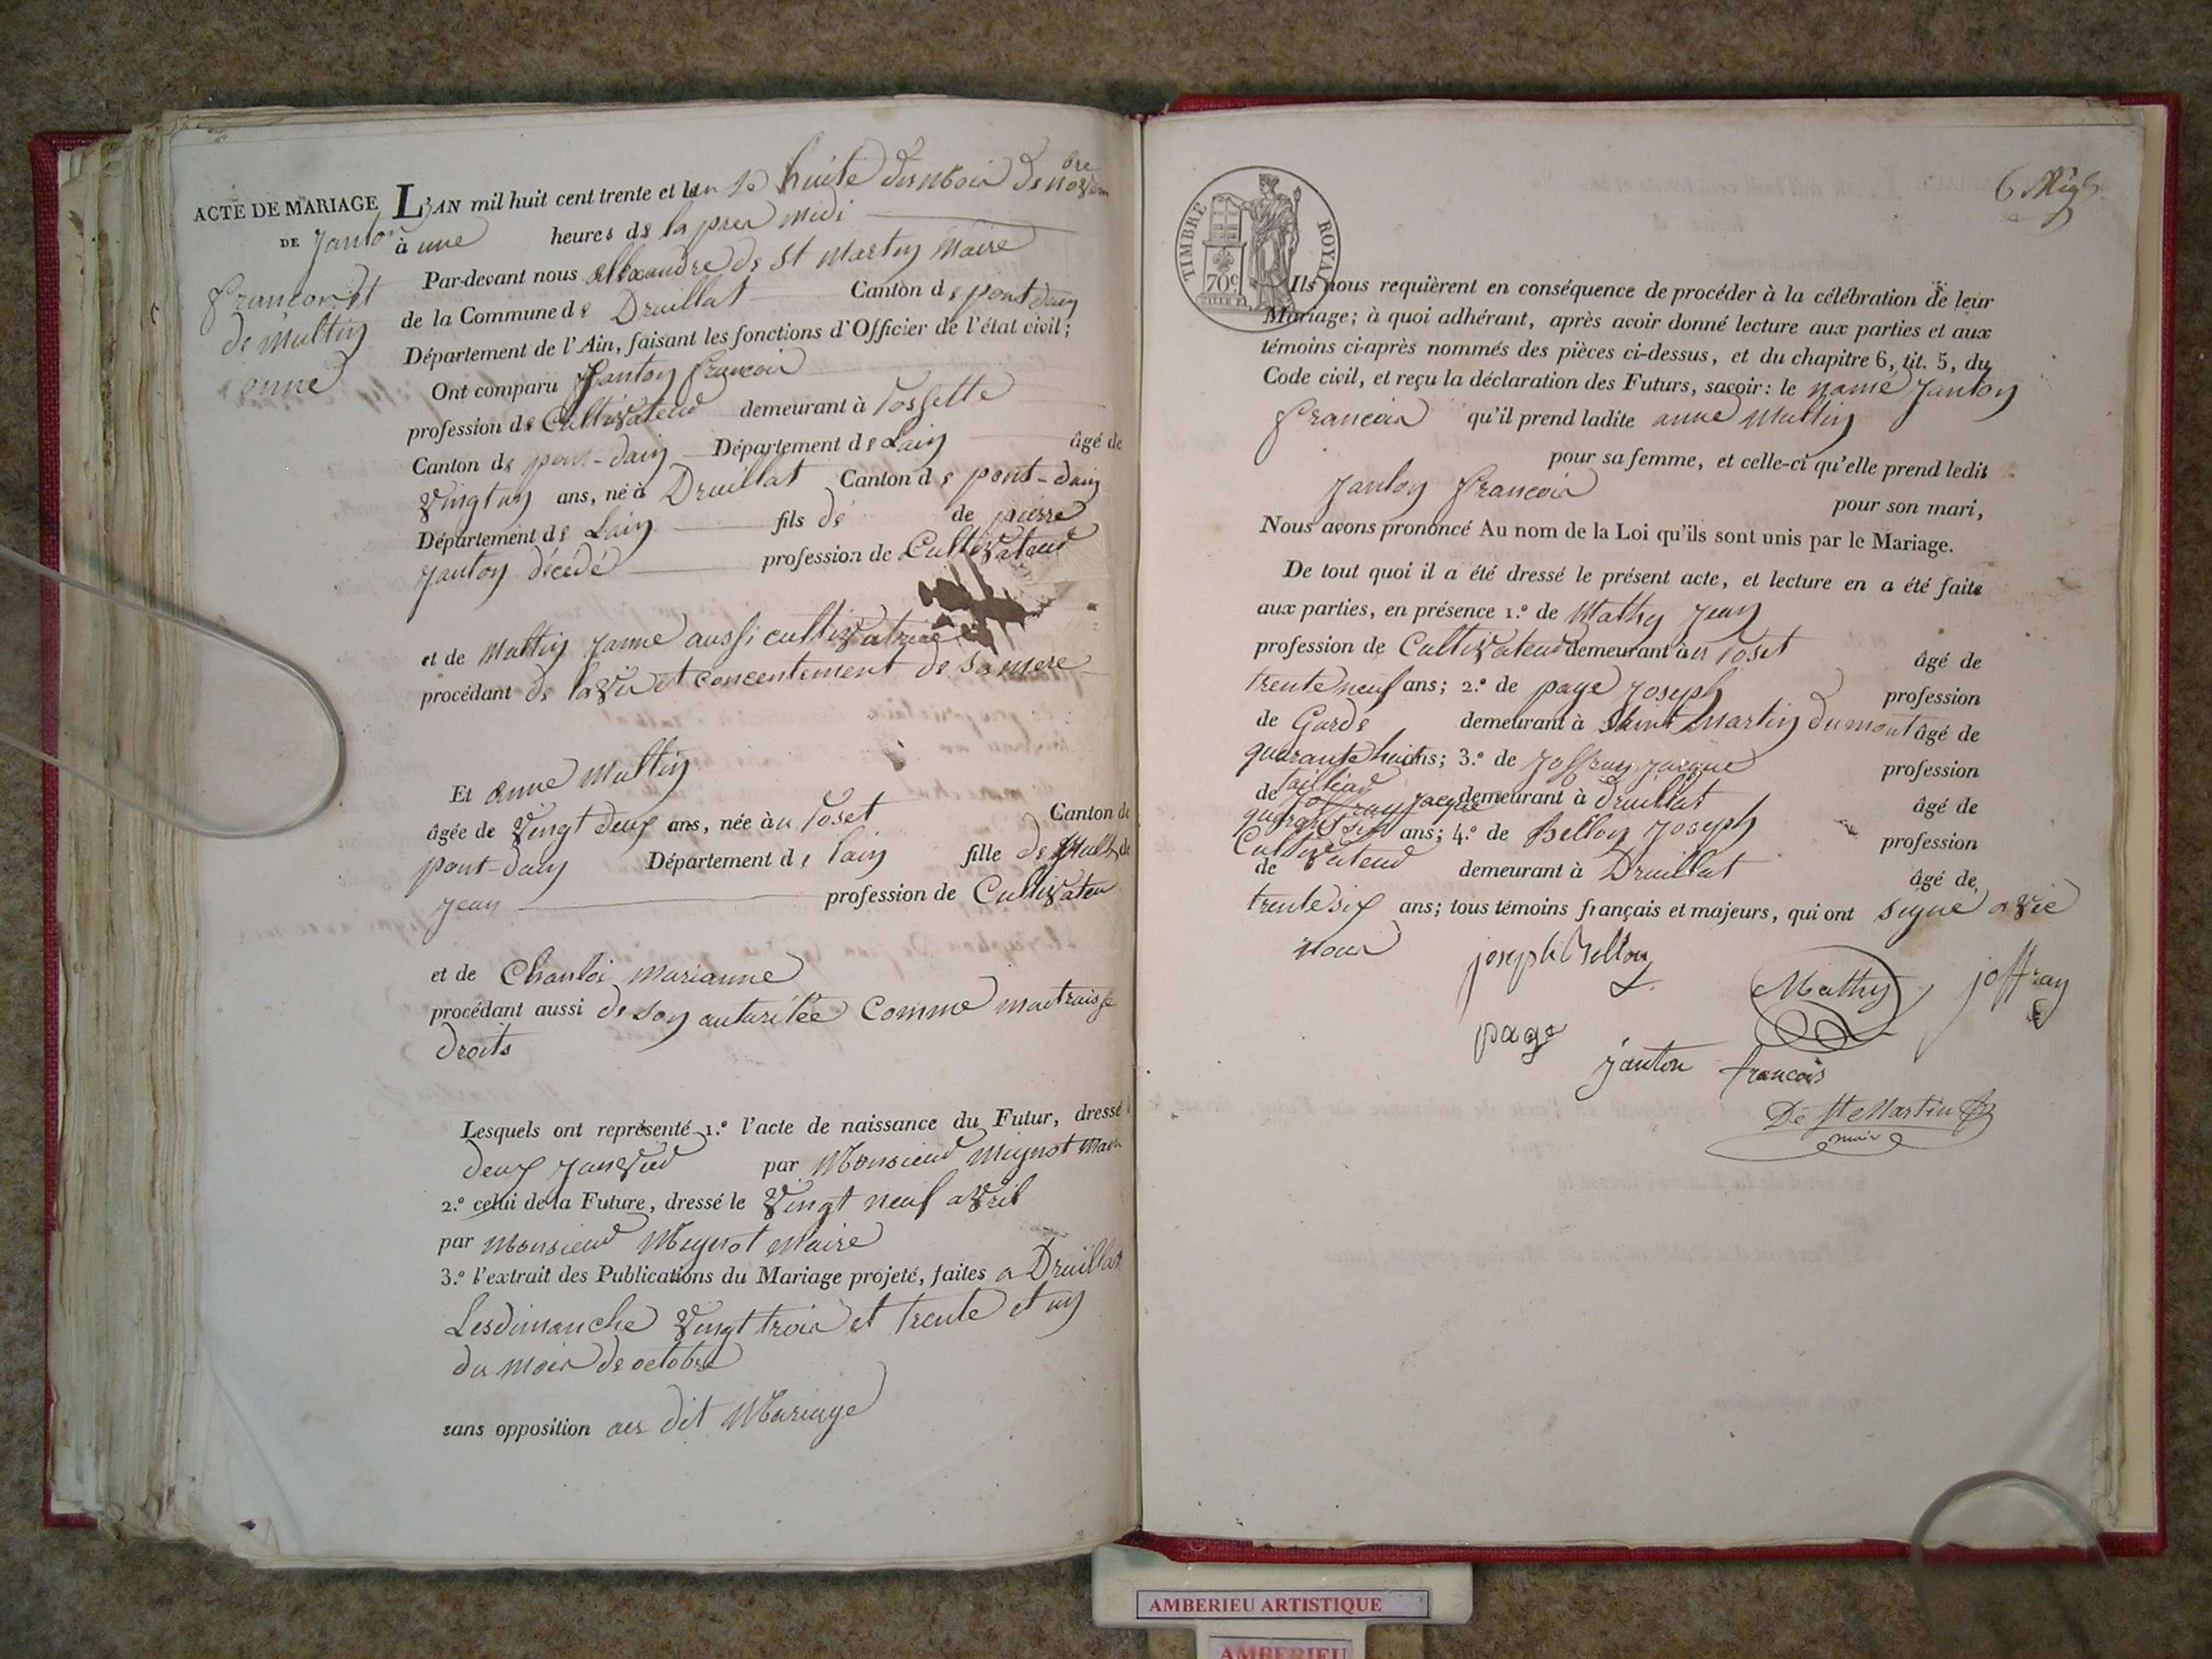 ACTE DE MARIAGE
DE Janton
francois et
de Multin
anne
L'AN mil huit cent trente et un le huite du mois de novembre
à une heures de la pres midi
Par-devant nous allexandre de St Martin Maire
de la Commune de Druillat Canton de pont dain
Département de l'Ain, faisant les fonctions d'Officier de l'état civil;
Ont comparu Janton francois
profession de Cultivateur demeurant à Rossette
Canton de pont-dain Département de Lain âgé de
vingt un ans, né à Druillat Canton de pont-dain
Département de Lain fils de de pierre
Janton décédé profession de Cultivateur
et de Multin Janne aussi cultivatrice
procédant de lavis et concentement de sa mere
Et anne Multin
âgée de vingt deux ans, née au Toset Canton de
pont-dain Département de lain fille de Multin de
jean profession de Cultivateu
et de Chanloi marianne
procédant aussi de son auturitée comme maitraisse
droits
Lesquels ont représenté 1.º l'acte de naissance du Futur, dressé
deux janvier par Monsieur Mignot Maire
2.º celui de la Future, dressé le vingt neuf avril
par Monsieur Mignot Maire
3.º l'extrait des Publications du Mariage projeté, faites a Druillat
Les dimanche vingt trois et trente et un
du mois de octobre
sans opposition au dit Mariage
TIMBRE ROYAL
70c
Ils nous requièrent en conséquence de procéder à la célébration de leur
Mariage; à quoi adhérant, après avoir donné lecture aux parties et aux
témoins ci-après nommés des pièces ci-dessus, et du chapitre 6, tit. 5, du
Code civil, et reçu la déclaration des Futurs, savoir: le nomé Janton
francois qu'il prend ladite anne Multin
pour sa femme, et celle-ci qu'elle prend ledit
Janton francois pour son mari,
Nous avons prononcé Au nom de la Loi qu'ils sont unis par le Mariage.
De tout quoi il a été dressé le présent acte, et lecture en a été faite
aux parties, en présence 1.º de Mathy jean
profession de Cultivateur demeurant à u Toset âgé de
trente neuf ans; 2.º de page Joseph profession
de Garde demeurant à Saint Martin du mont âgé de
quarante huit ans; 3.º de Joffray jacque profession
de tailleur Joffray jacque demeurant à druillat âgé de
quarant six ans; 4.º de Bellon Joseph profession
de Cultivateur demeurant à Druillat âgé de
trente six ans; tous témoins français et majeurs, qui ont signé avec
nous
joseph Bellon
Mathy
joffray
page
janton francois
De St Martin
maire
AMBERIEU ARTISTIQUE
AMBERIEU